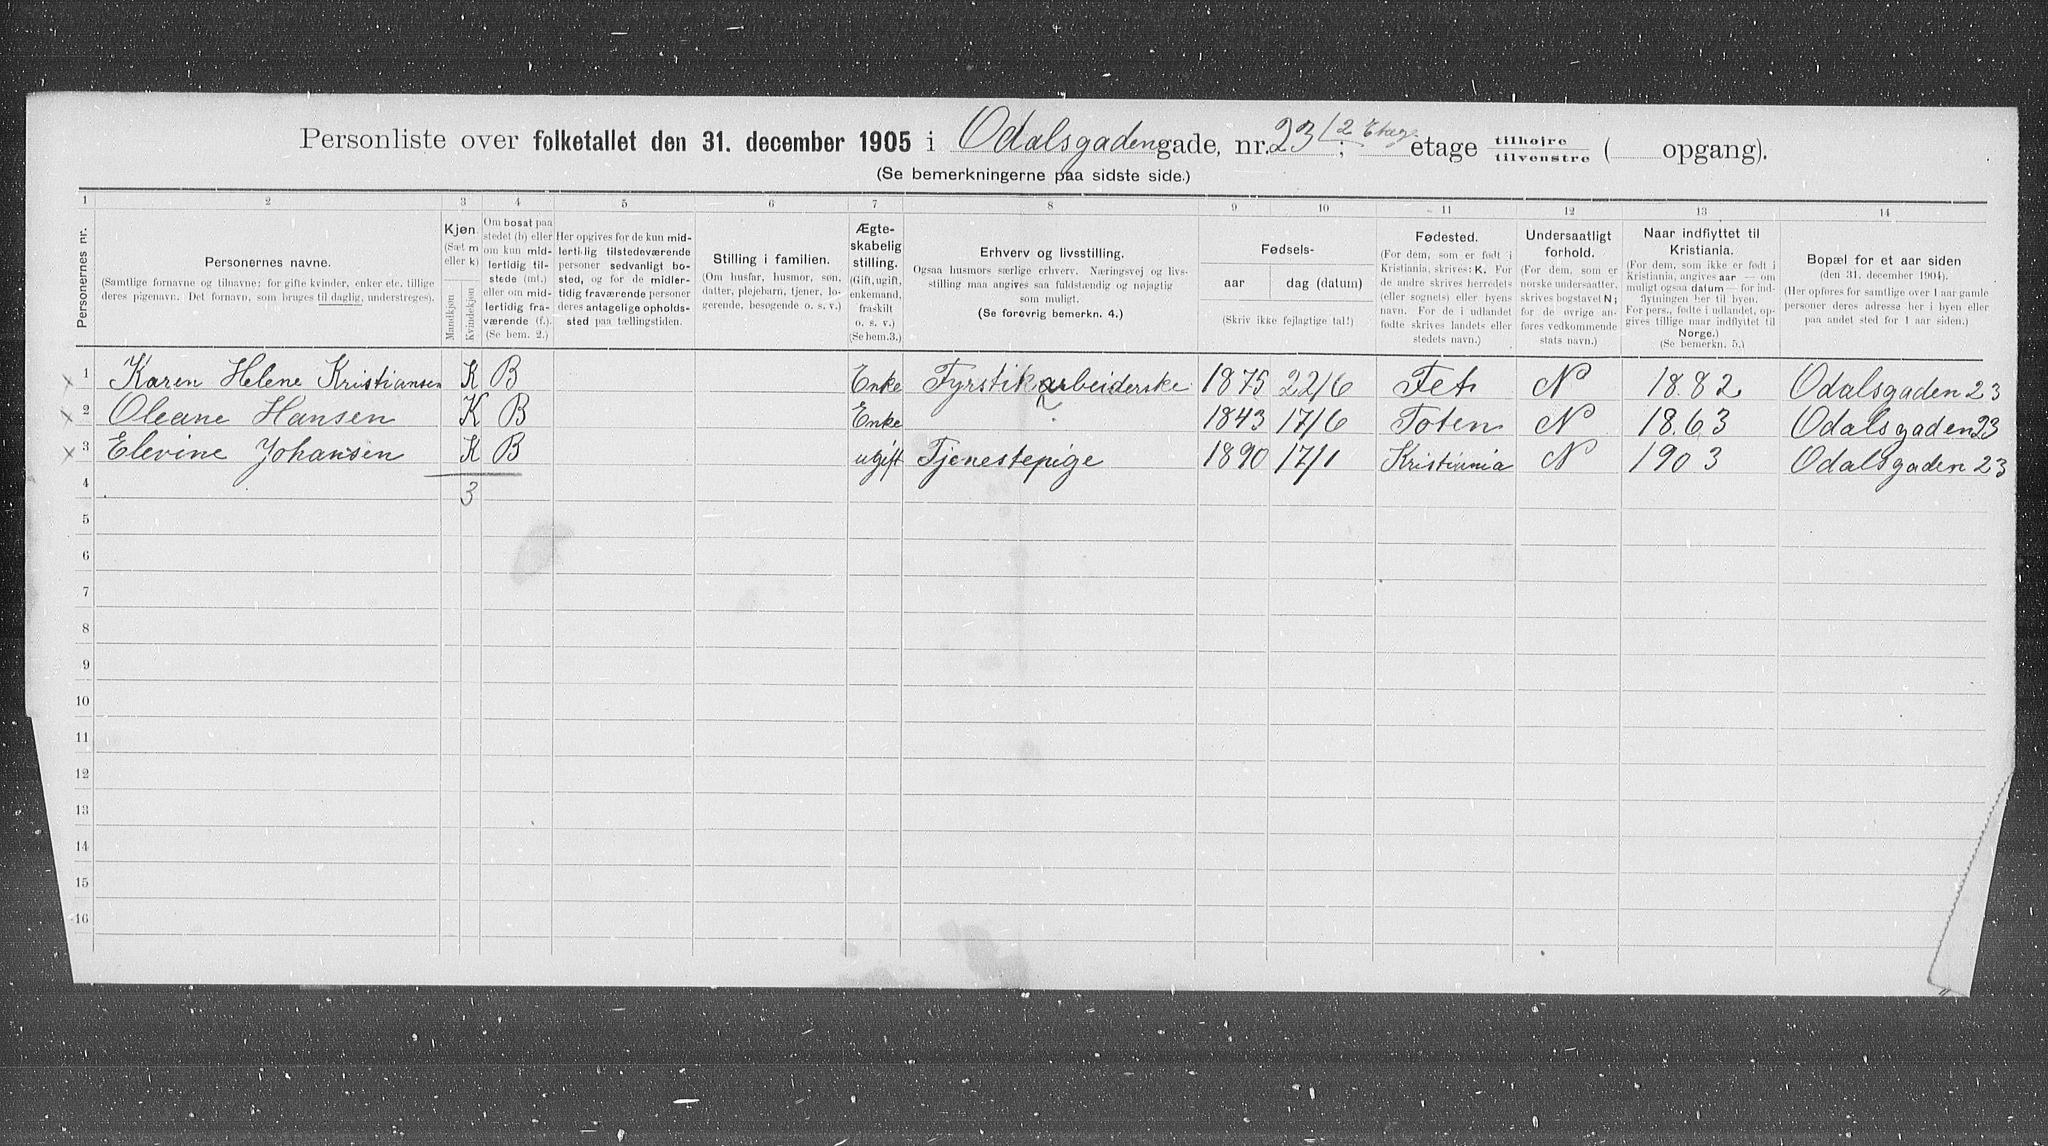 Personliste over folketallet den 31. december 1905 i Odalsgadengade, nr. 23; 2 Etage etage tilhøjre tilvenstre ( opgang).
(Se bemerkningerne paa sidste side.)
1 2 3 4 5 6 7 8 9 10 11 12 13 14
Personernes nr.
Personernes navne.
(Samtlige fornavne og tilnavne; for gifte kvinder, enker etc. tillige
deres pigenavn. Det fornavn, som bruges til daglig, understreges).
Kjøn.
(Sæt m
eller k)
Mandkjøn
Kvindekjøn
Om bosat paa
stedet (b) eller
om kun mid-
lertidig til-
stede (mt.)
eller om mid-
lertidig fra-
værende (f.).
(Se bem. 2.)
Her opgives for de kun mid-
lertidig tilstedeværende
personer sedvanligt bo-
sted, og for de midler-
tidig fraværende personer
deres antagelige opholds-
sted paa tællingstiden.
Stilling i familien.
(Om husfar, husmor, søn,
datter, plejebarn, tjener, lo-
gerende, besøgende o. s. v.)
Ægte-
skabelig
stilling.
(Gift, ugift,
enkemand,
fraskilt
o. s. v.)
(Se bem. 3.)
Erhverv og livsstilling.
Ogsaa husmors særlige erhverv. Næringsvej og livs-
stilling maa angives saa fuldstændig og nøjagtig
som muligt.
(Se forøvrig bemerkn. 4.)
Fødsels-
aar dag (datum)
(Skriv ikke fejlagtige tal!)
Fødested.
(For dem, som er født i
Kristiania, skrives: K. For
de andre skrives herredets
(eller sognets) eller byens
navn. For de i udlandet
fødte skrives landets eller
stedets navn.)
Undersaatligt
forhold.
(For dem, som er
norske undersaatter,
skrives bogstavet N;
for de øvrige an-
føres vedkommende
stats navn.)
Naar indflyttet til
Kristiania.
(For dem, som ikke er født i
Kristiania, angives aar — om
muligt ogsaa datum — for ind-
flytningen her til byen.
For pers., fødte i udlandet, op-
gives tillige naar indflyttet til
Norge.)
(Se bemerkn. 5.)
Bopæl for et aar siden
(den 31. december 1904).
(Her opføres for samtlige over 1 aar gamle
personer deres adresse her i byen eller
paa andet sted for 1 aar siden.)
x 1 Karen Helene Kristiansen K B Enke Fyrstikarbeiderske 1875 22/6 Fet N 1882 Odalsgaden 23
x 2 Oleane Hansen K B Enke ? 1843 17/6 Toten N 1863 Odalsgaden 23
x 3 Elevine Johansen K B ugift Tjenestepige 1890 17/1 Kristiania N 1903 Odalsgaden 23
4 3
5
6
7
8
9
10
11
12
13
14
15
16